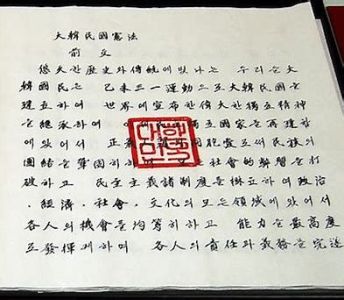 大韓民國憲法
前文
悠久한 歷史와 傳統에 빛나는 우리들 大
韓民國은 己未三一運動으로 大韓民國을
建立하여 世界에 宣布한 偉大한 獨立精神
을 繼承하여 獨立國家를 再建함
에 있어서 正義 同胞愛로써 民族의
團結을 鞏固히하며 社會的 弊習을 打
破하고 民主主義諸制度를 樹立하여 政治
、經濟、社會、文化의 모든 領域에 있어서
各人의 機會를 均等히하고 能力을 最高度
로 發揮케하며 各人의 責任과 義務를 完遂